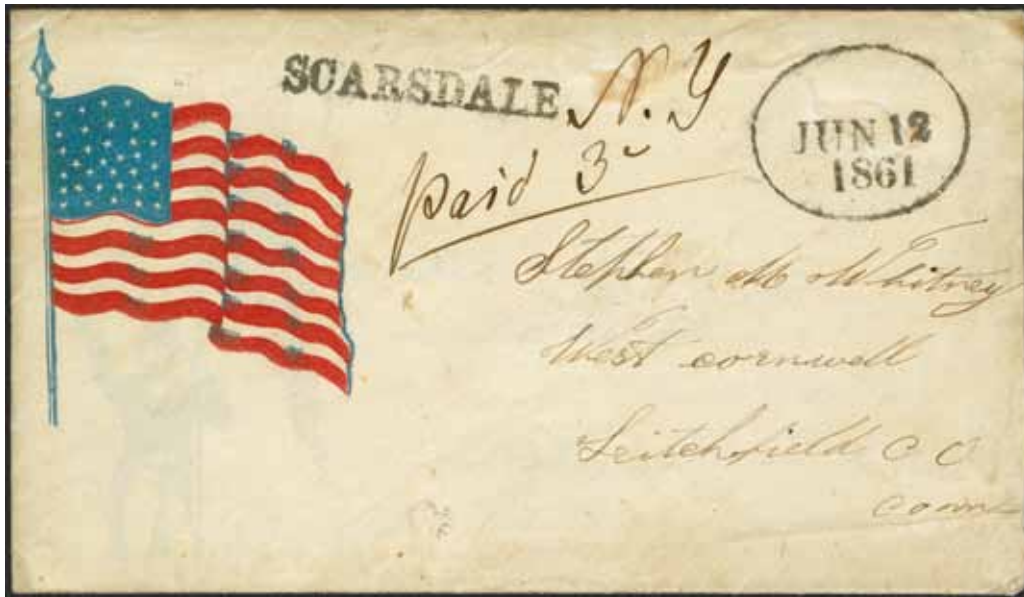 SCARSDALE N.Y
paid 3
JUN 12
1861
Stephen M Whitney
West cornwell
Leitchfield CO
conn